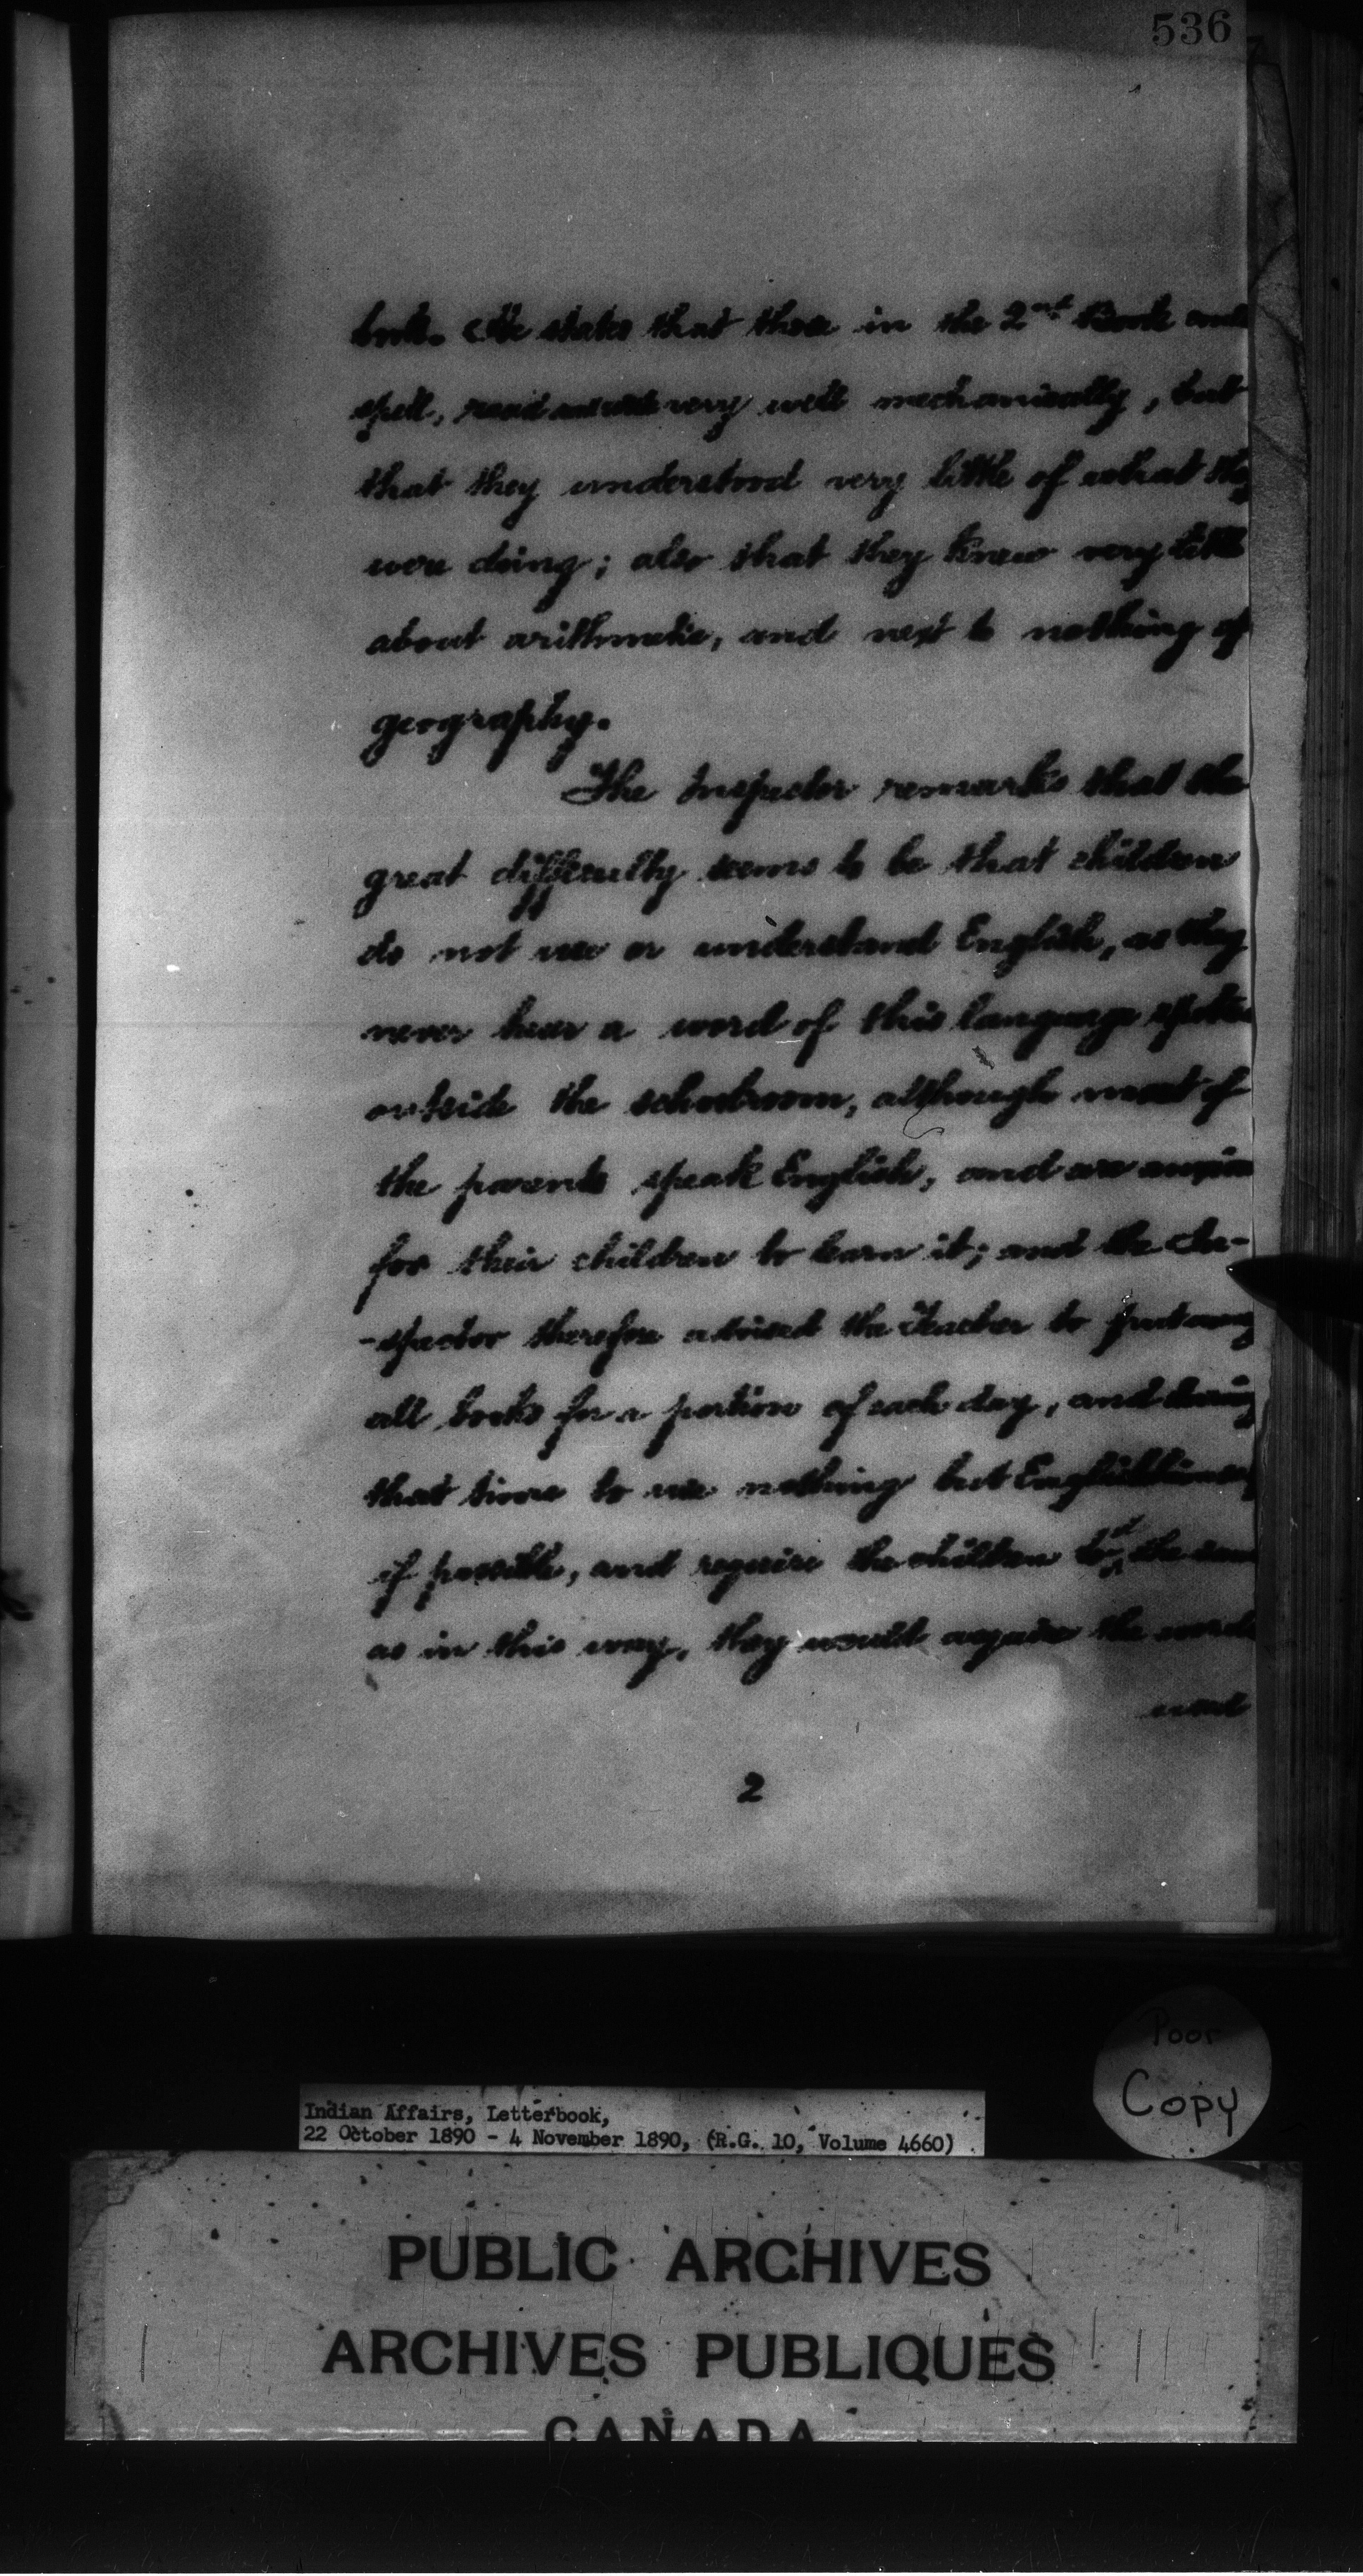 536
book. He states that those in the 2nd Book could
spell, read and write very well mechanically, but
that they understood very little of what they
were doing; also that they knew very little
about arithmetic, and next to nothing of
geography.
The Inspector remarks that the
great difficulty seems to be that children
do not use or understand English, as they
never hear a word of this language spoken
outside the schoolroom, although most of
the parents speak English, and are anxious
for their children to learn it; and the In-
-spector therefore advised the Teacher to put away
all books for a portion of each day, and during
that time to use nothing but English
if possible, and require the children to do the same
as in this way, they would acquire the words
and
2
Poor
Copy
Indian Affairs, Letterbook,
22 October 1890 - 4 November 1890, (R.G. 10, Volume 4660)
PUBLIC ARCHIVES
ARCHIVES PUBLIQUES
CANADA